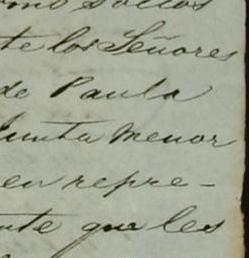 como Socios
te los Señores
de Paula
Junta Menor
en repre-
nte que les